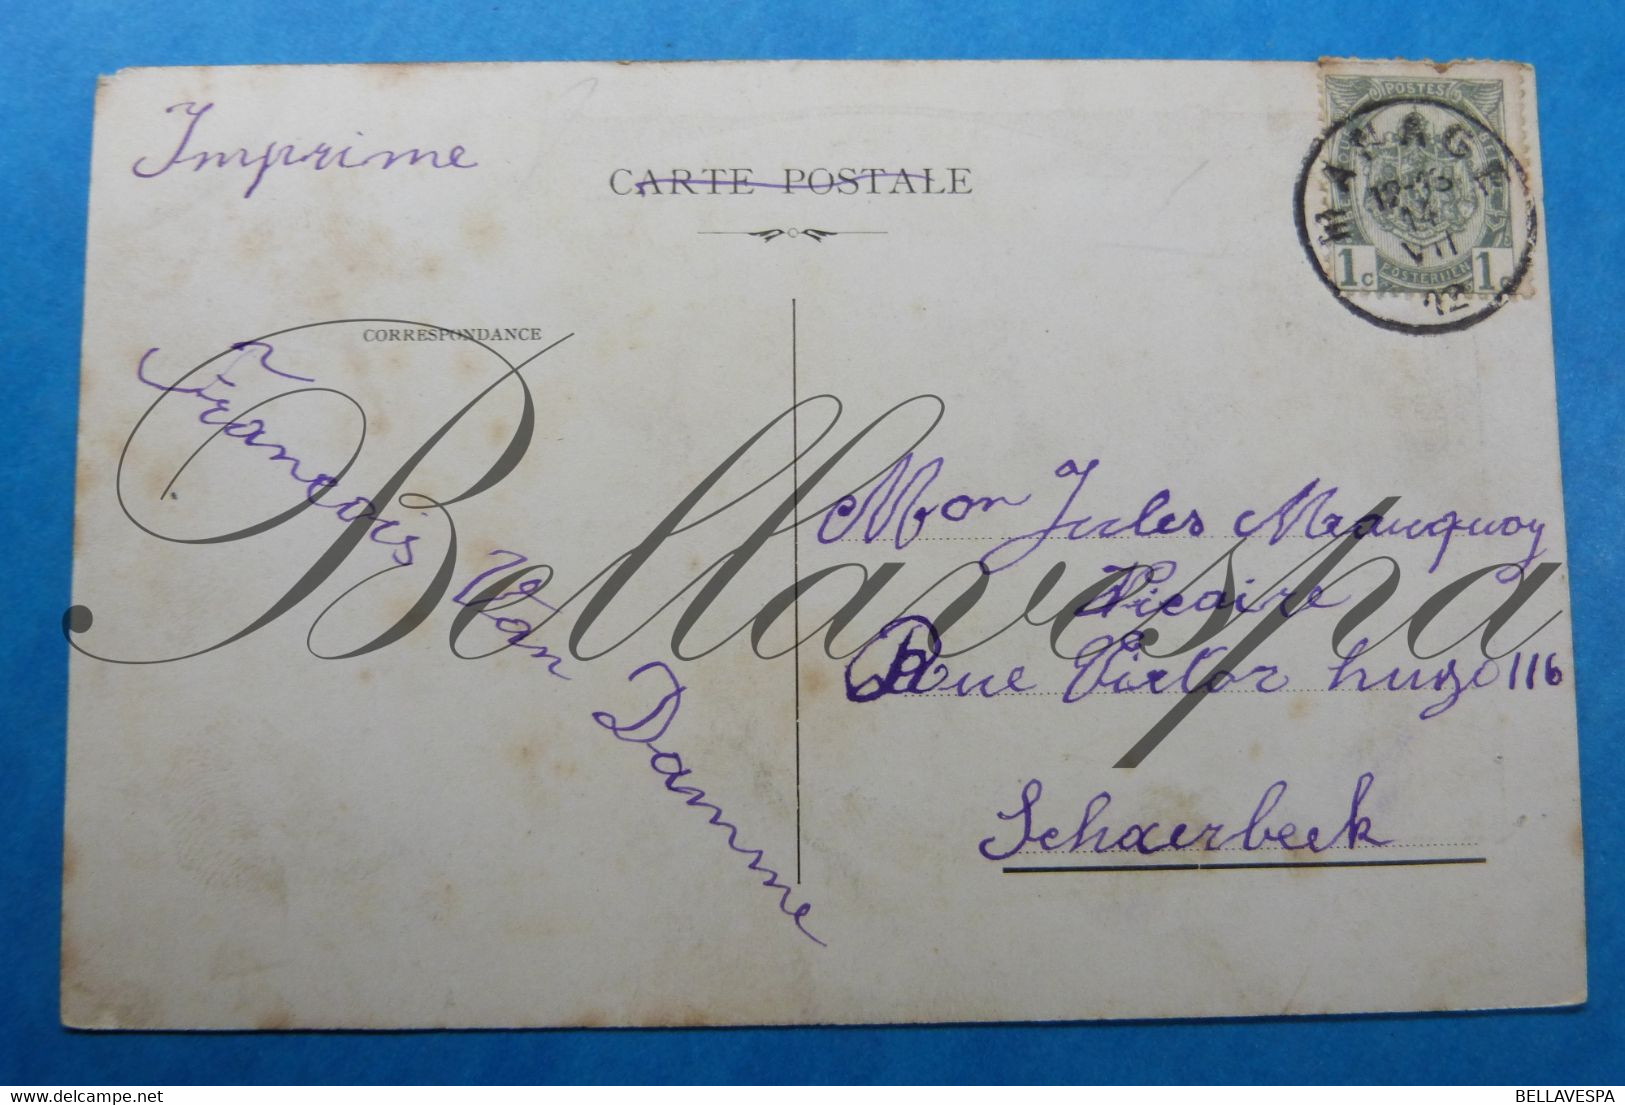 Imprime
CARTE POSTALE
POSTES
MANAGE
14
VII
12
1c
POSTERIJEN
1c
CORRESPONDANCE
François Van Damme
Mon Jules Mauquoy
Vicaire
Rue Victor hugo 116
Schaerbeek
Bellavespa
delcampe.net
BELLAVESPA